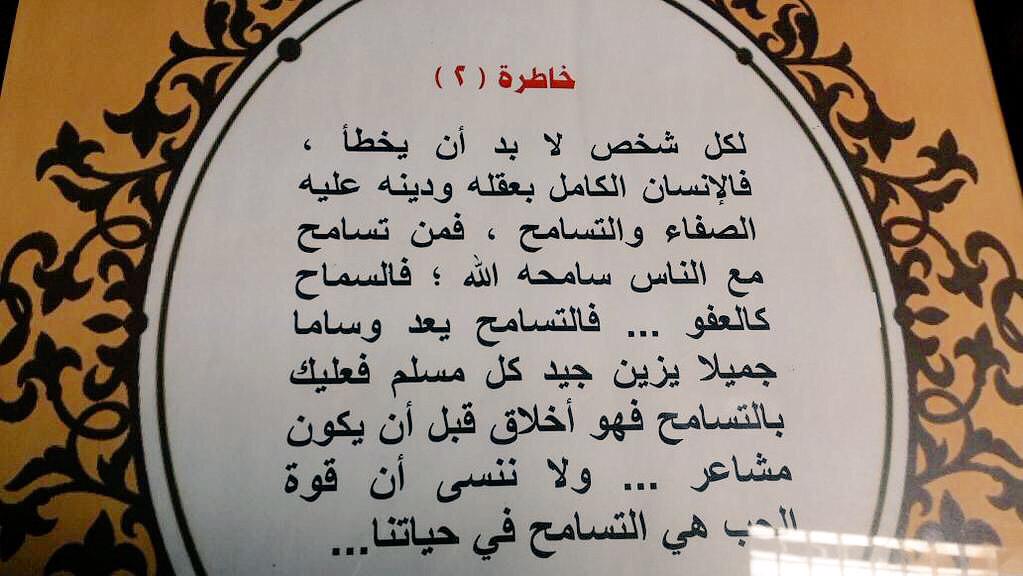 خاطرة ( ٢ )
لكل شخص لا بد أن يخطأ ،
فالإنسان الكامل بعقله ودينه عليه
الصفاء والتسامح ، فمن تسامح
مع الناس سامحه الله ؛ فالسماح
كالعفو ... فالتسامح يعد وساما
جميلا يزين جيد كل مسلم فعليك
بالتسامح فهو أخلاق قبل أن يكون
مشاعر ... ولا ننسى أن قوة
الحب هي التسامح في حياتنا...